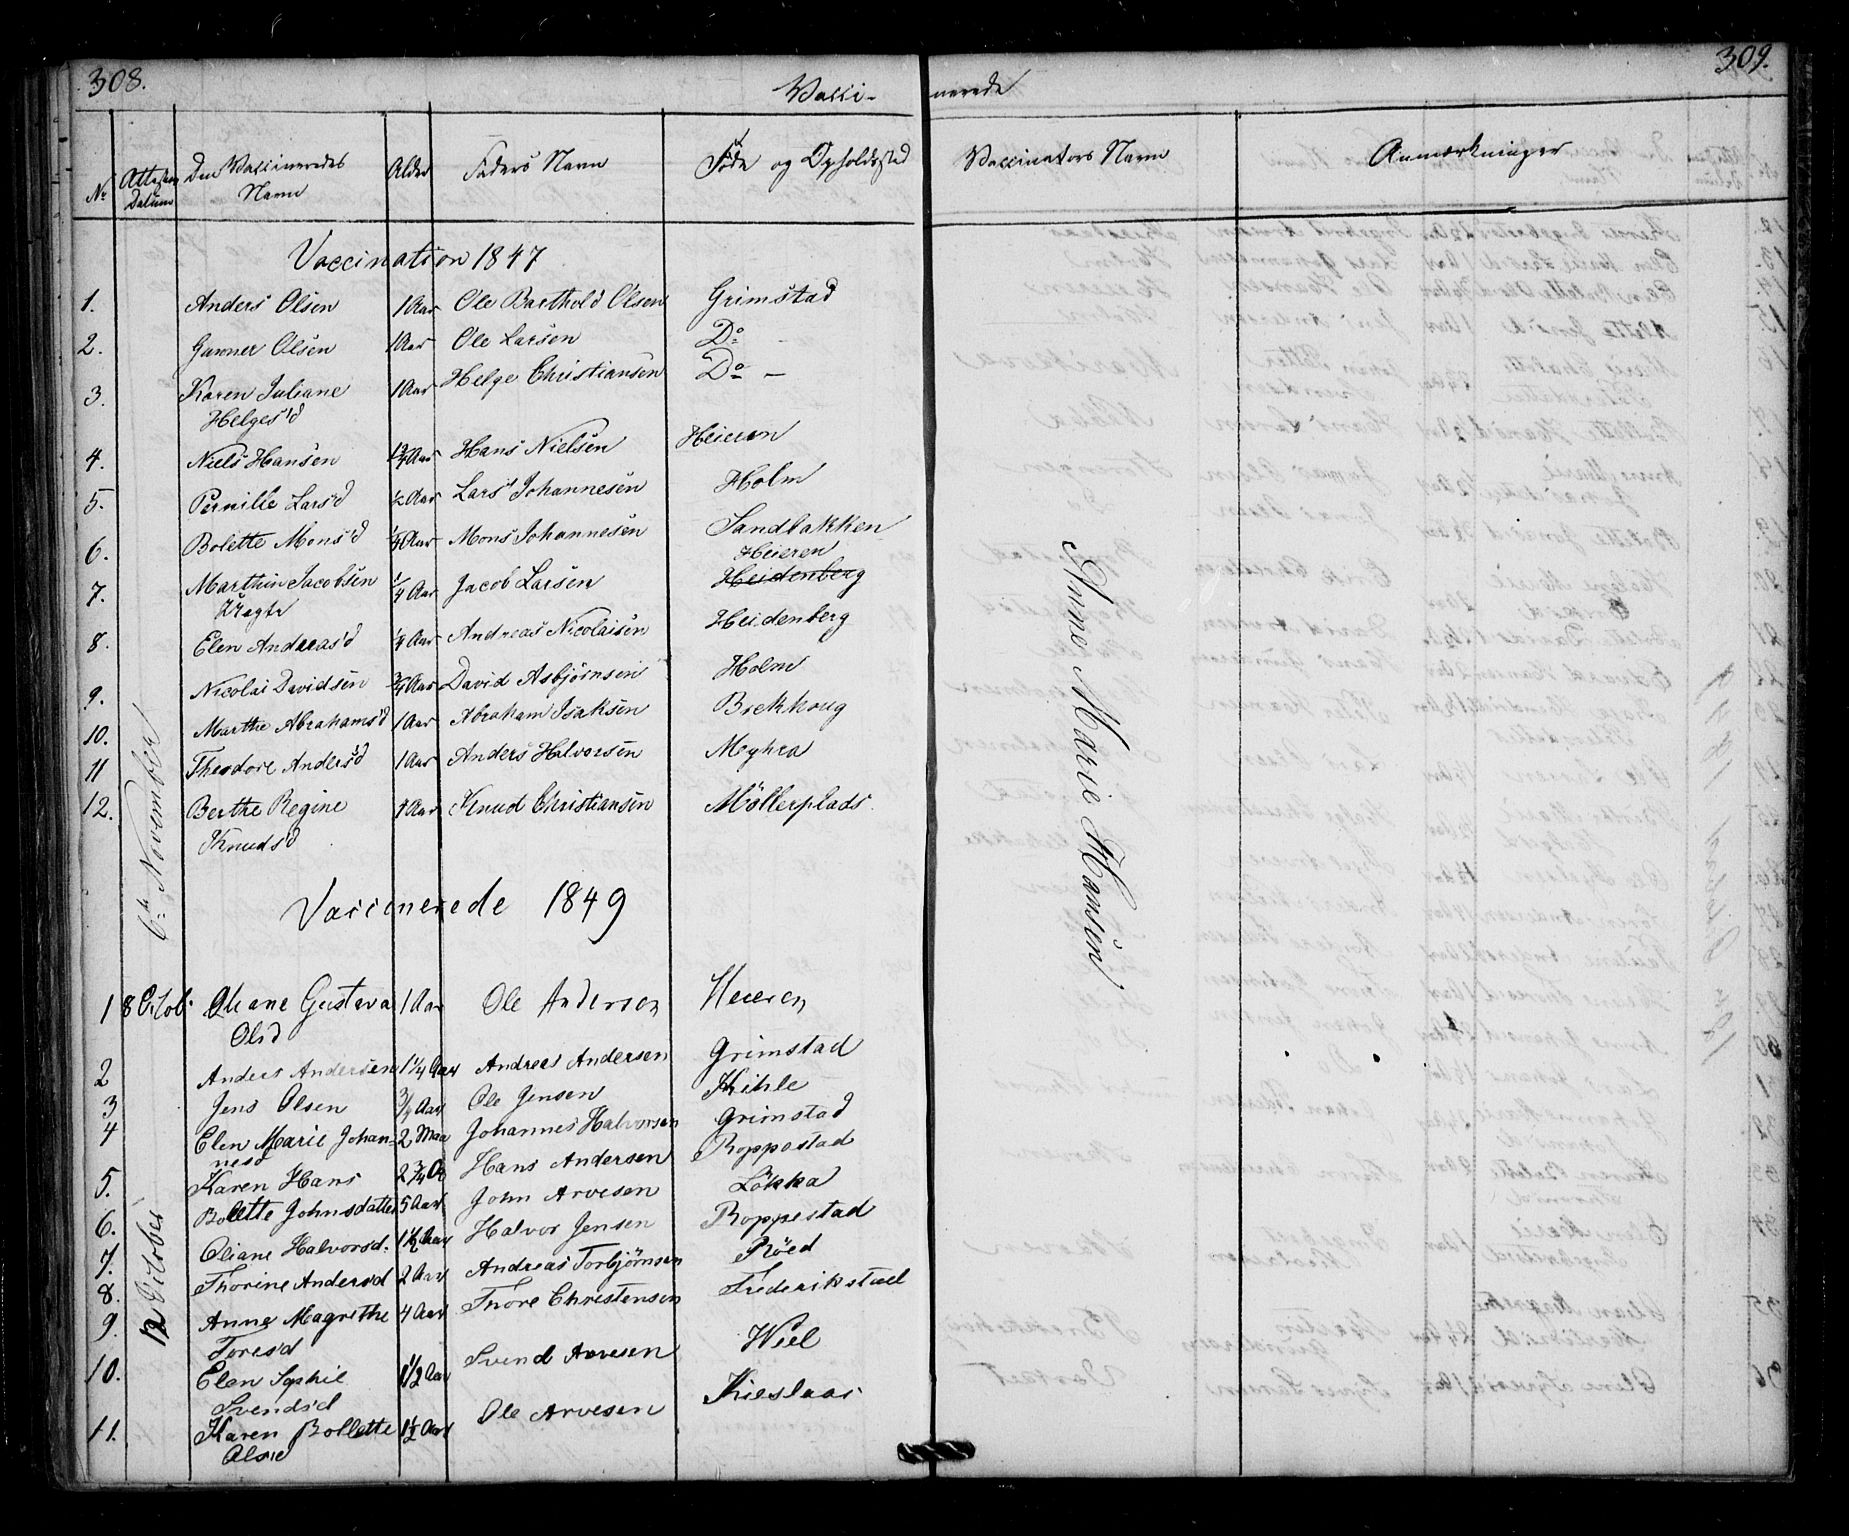 308. Vacci- nerede 309.
No Attestens Datum Den Vaccineredes Navn Alder Faders Navn Føde og Opholdssted Vaccinators Navn Anmærkninger
Vaccination 1847
1. Anders Olsen 1 Aar Ole Barthold Olsen Grimstad
2. Gunner Olsen 1 Aar Ole Larsen Do -
3. Karen Juliane 1 Aar Helge Christiansen Do -
Helges'd
4. Niels Hansen 1 3/4 Aar Hans Nielsen Heieren
5. Pernille Lars'd 1/2 Aar Lars Johannesen Holm
6. Bolette Mons'd 1/4 Aar Mons Johannesen Sandbakken
Heieren
7. Marthin Jacobsen 1/4 Aar Jacob Larsen Heidenberg
Uægte
8. Elen Andreas'd 1/4 Aar Andreas Nicolaisen Heidenberg
9. Nicolai Davidsen 3/4 Aar David Asbjørnsen Holm
10. Marthe Abrahams'd 1 Aar Abraham Isaksen Brekhoug
11 Theodore Anders'd 1 Aar Anders Halvorsen Meyhra
12. Berthe Regine 1 Aar Knud Christiansen Möllerplads.
Knuds'd
6te November
Anne Marie Hansen
Vaccinerede 1849
1 8 Octob. Oliane Gustava 1 Aar Ole Andersen Heieren
Olsd
2 Anders Andersen 1 1/4 Aar Andreas Andersen Grimstad
3 Jens Olsen 3/4 Aar Ole Jensen Kihle
4 Elen Marie Johan- 2 Maa Johannes Halvorsen Grimstad
nesd
5. Karen Hans 2 3/4 A Hans Andersen Roppestad
6. Bolette Johnsdatter 5 Aar John Arvesen Lökka
7. Oliane Halvorsd. 1 1/2 Aar Halvor Jensen Roppestad
8. Thorine Andersd 2 Aar Andreas Torbjörnsen Röed
9. Anne Magrethe 4 Aar Thore Christensen Frederikstad
Toresd
10. Elen Sophie 1 1/2 Aar Svend Arvesen Wiel
Svends'd
11. Karen Bollette 1 1/2 Aar Ole Arvesen Kieslaar
Olsd
12 October